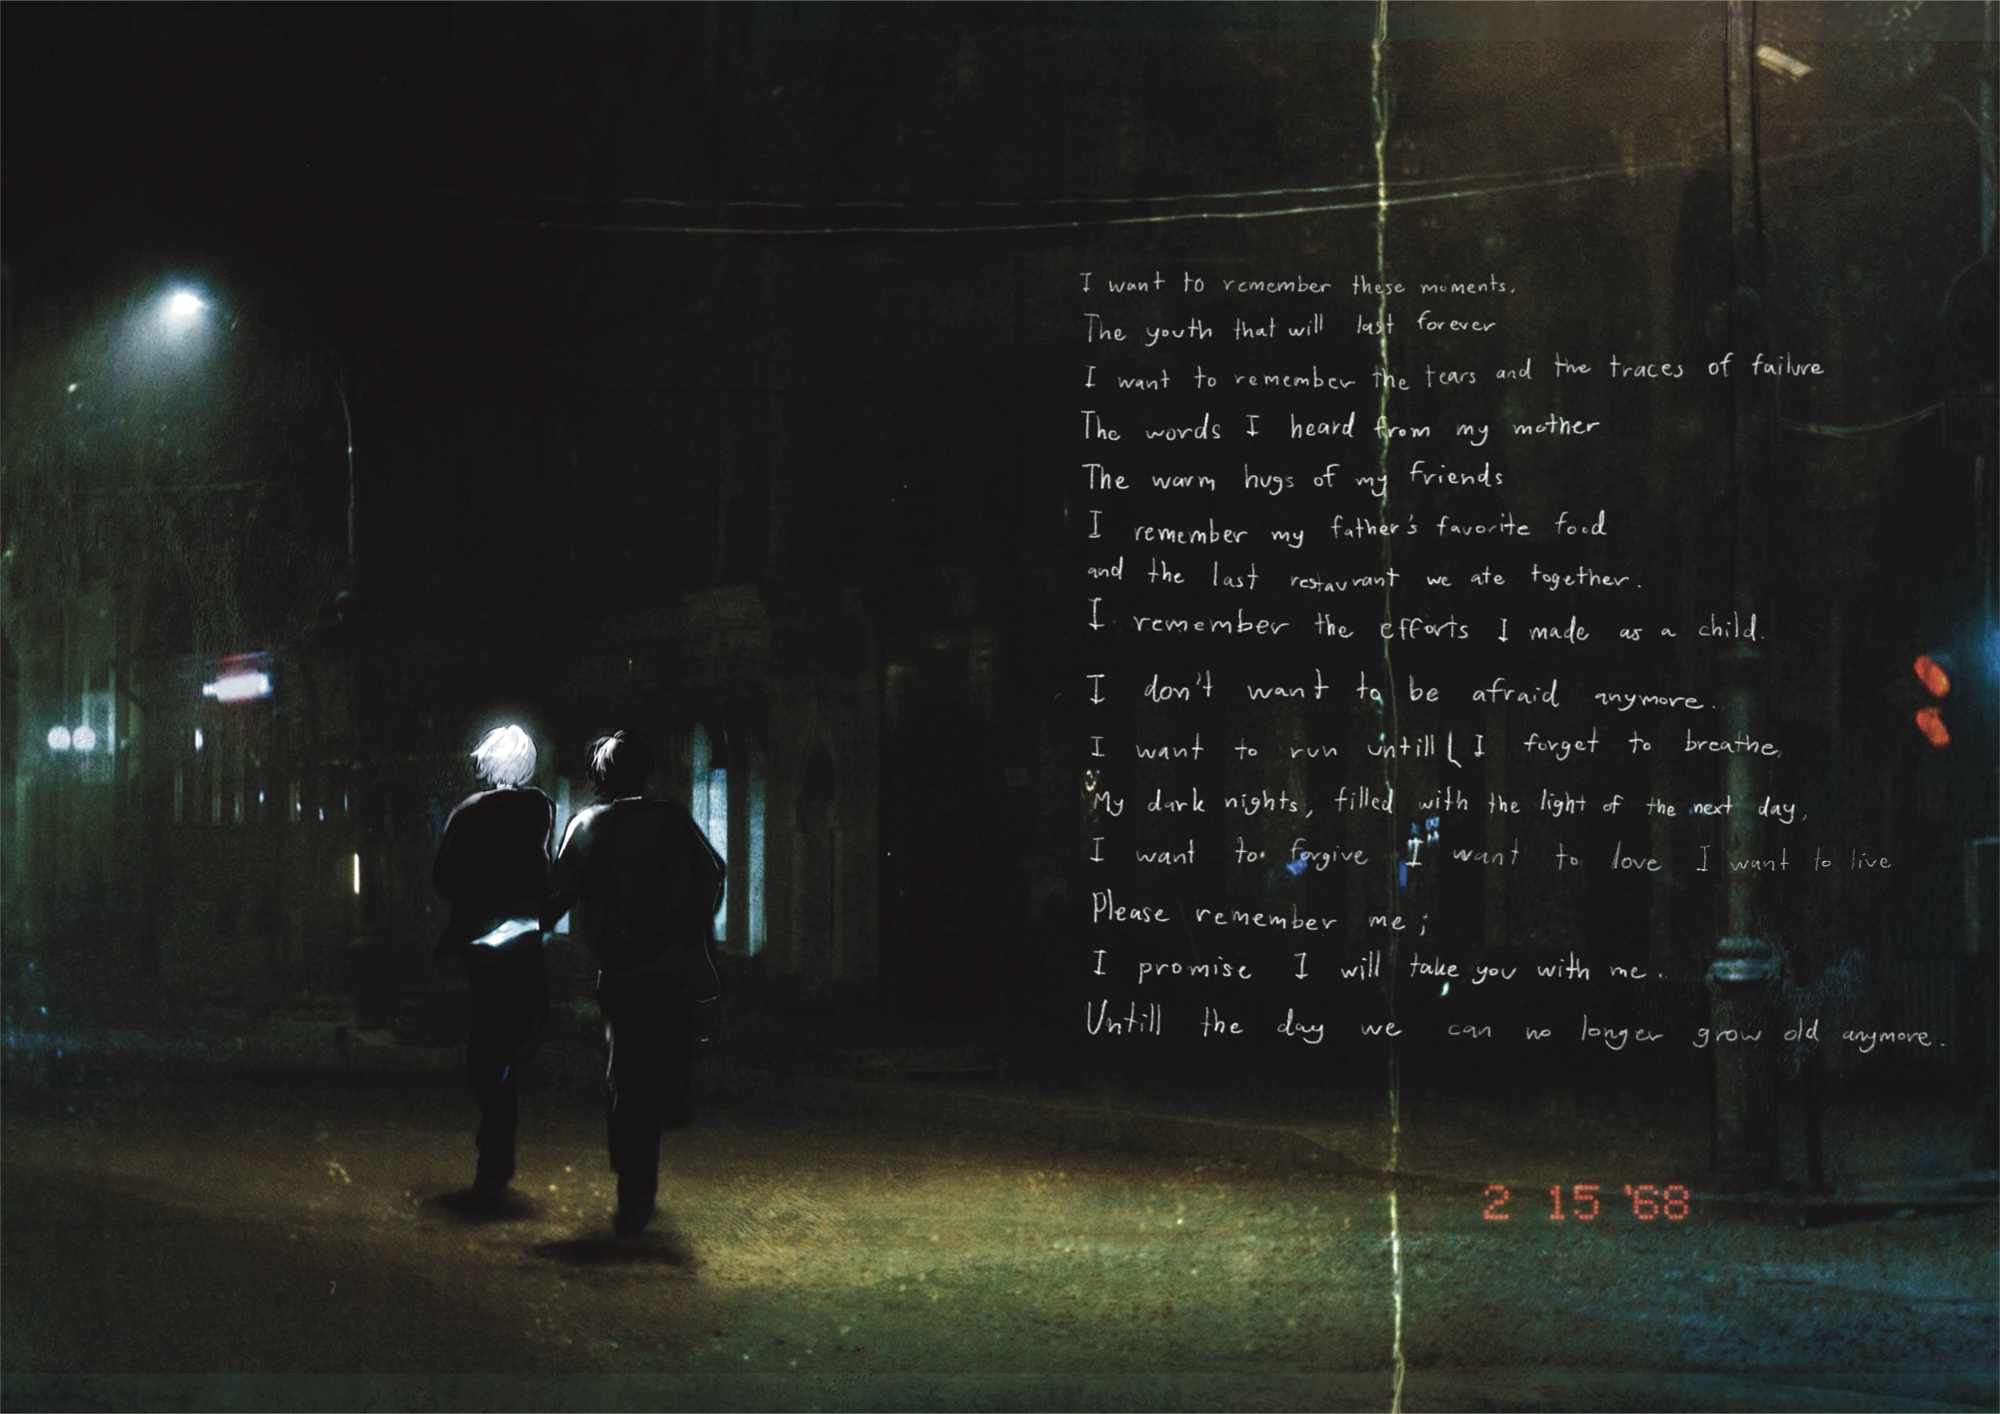 I want to remember these moments.
The youth that will last forever
I want to remember the tears and the traces of failure
The words I heard from my mother
The warm hugs of my friends
I remember my father's favorite food
and the last restaurant we ate together.
I remember the efforts I made as a child.
I don't want to be afraid anymore.
I want to run untill I forget to breathe,
My dark nights, filled with the light of the next day,
I want to forgive I want to love I want to live
Please remember me;
I promise I will take you with me.
Untill the day we can no longer grow old anymore.
2 15 '68